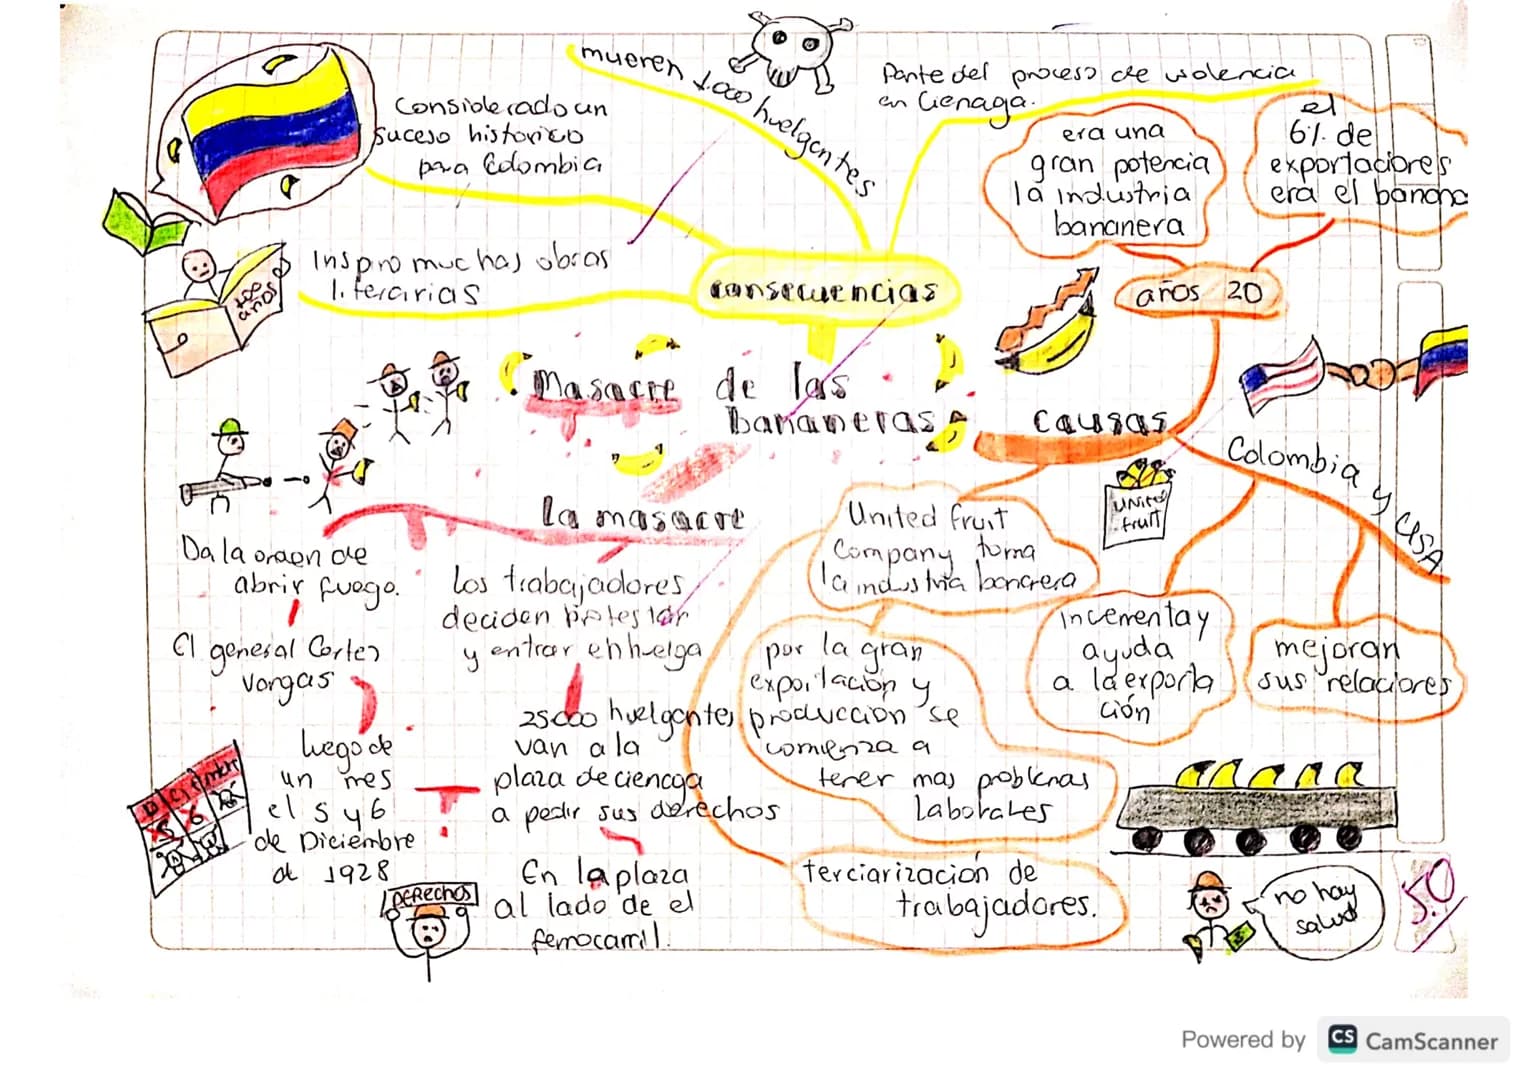 Considerado un
suceso historico
para Colombia
mueren 1.000 huelgantes
Parte del proceso de violencia
en Cienaga.
era una
gran potencia
la industria
bananera
el
6% de
exportaciones
era el banano
Inspiro muchas obras
literarias
100
años
consecuencias
años 20
Masacre de las
bananeras
Causas
Colombia y USA
United
fruit
La masacre
United fruit
Company toma
la industria bananera
Da la orden de
abrir fuego.
Los trabajadores
deciden protestar
y entrar en huelga
El general Cortes
vargas
por la gran
exportación y
producción se
comienza a
tener mas problemas
laborales
incrementa y
ayuda
a la exporta
ción
mejoran
sus relaciones
25000 huelgantes
van a la
plaza de cienaga
a pedir sus derechos
luego de
un mes
el 5 y 6
de Diciembre
de 1928
Diciembre
5 6
En la plaza
al lado de el
ferrocarril.
DERECHOS
terciarización de
trabajadores.
no hay
salud
5.0
Powered by CS CamScanner